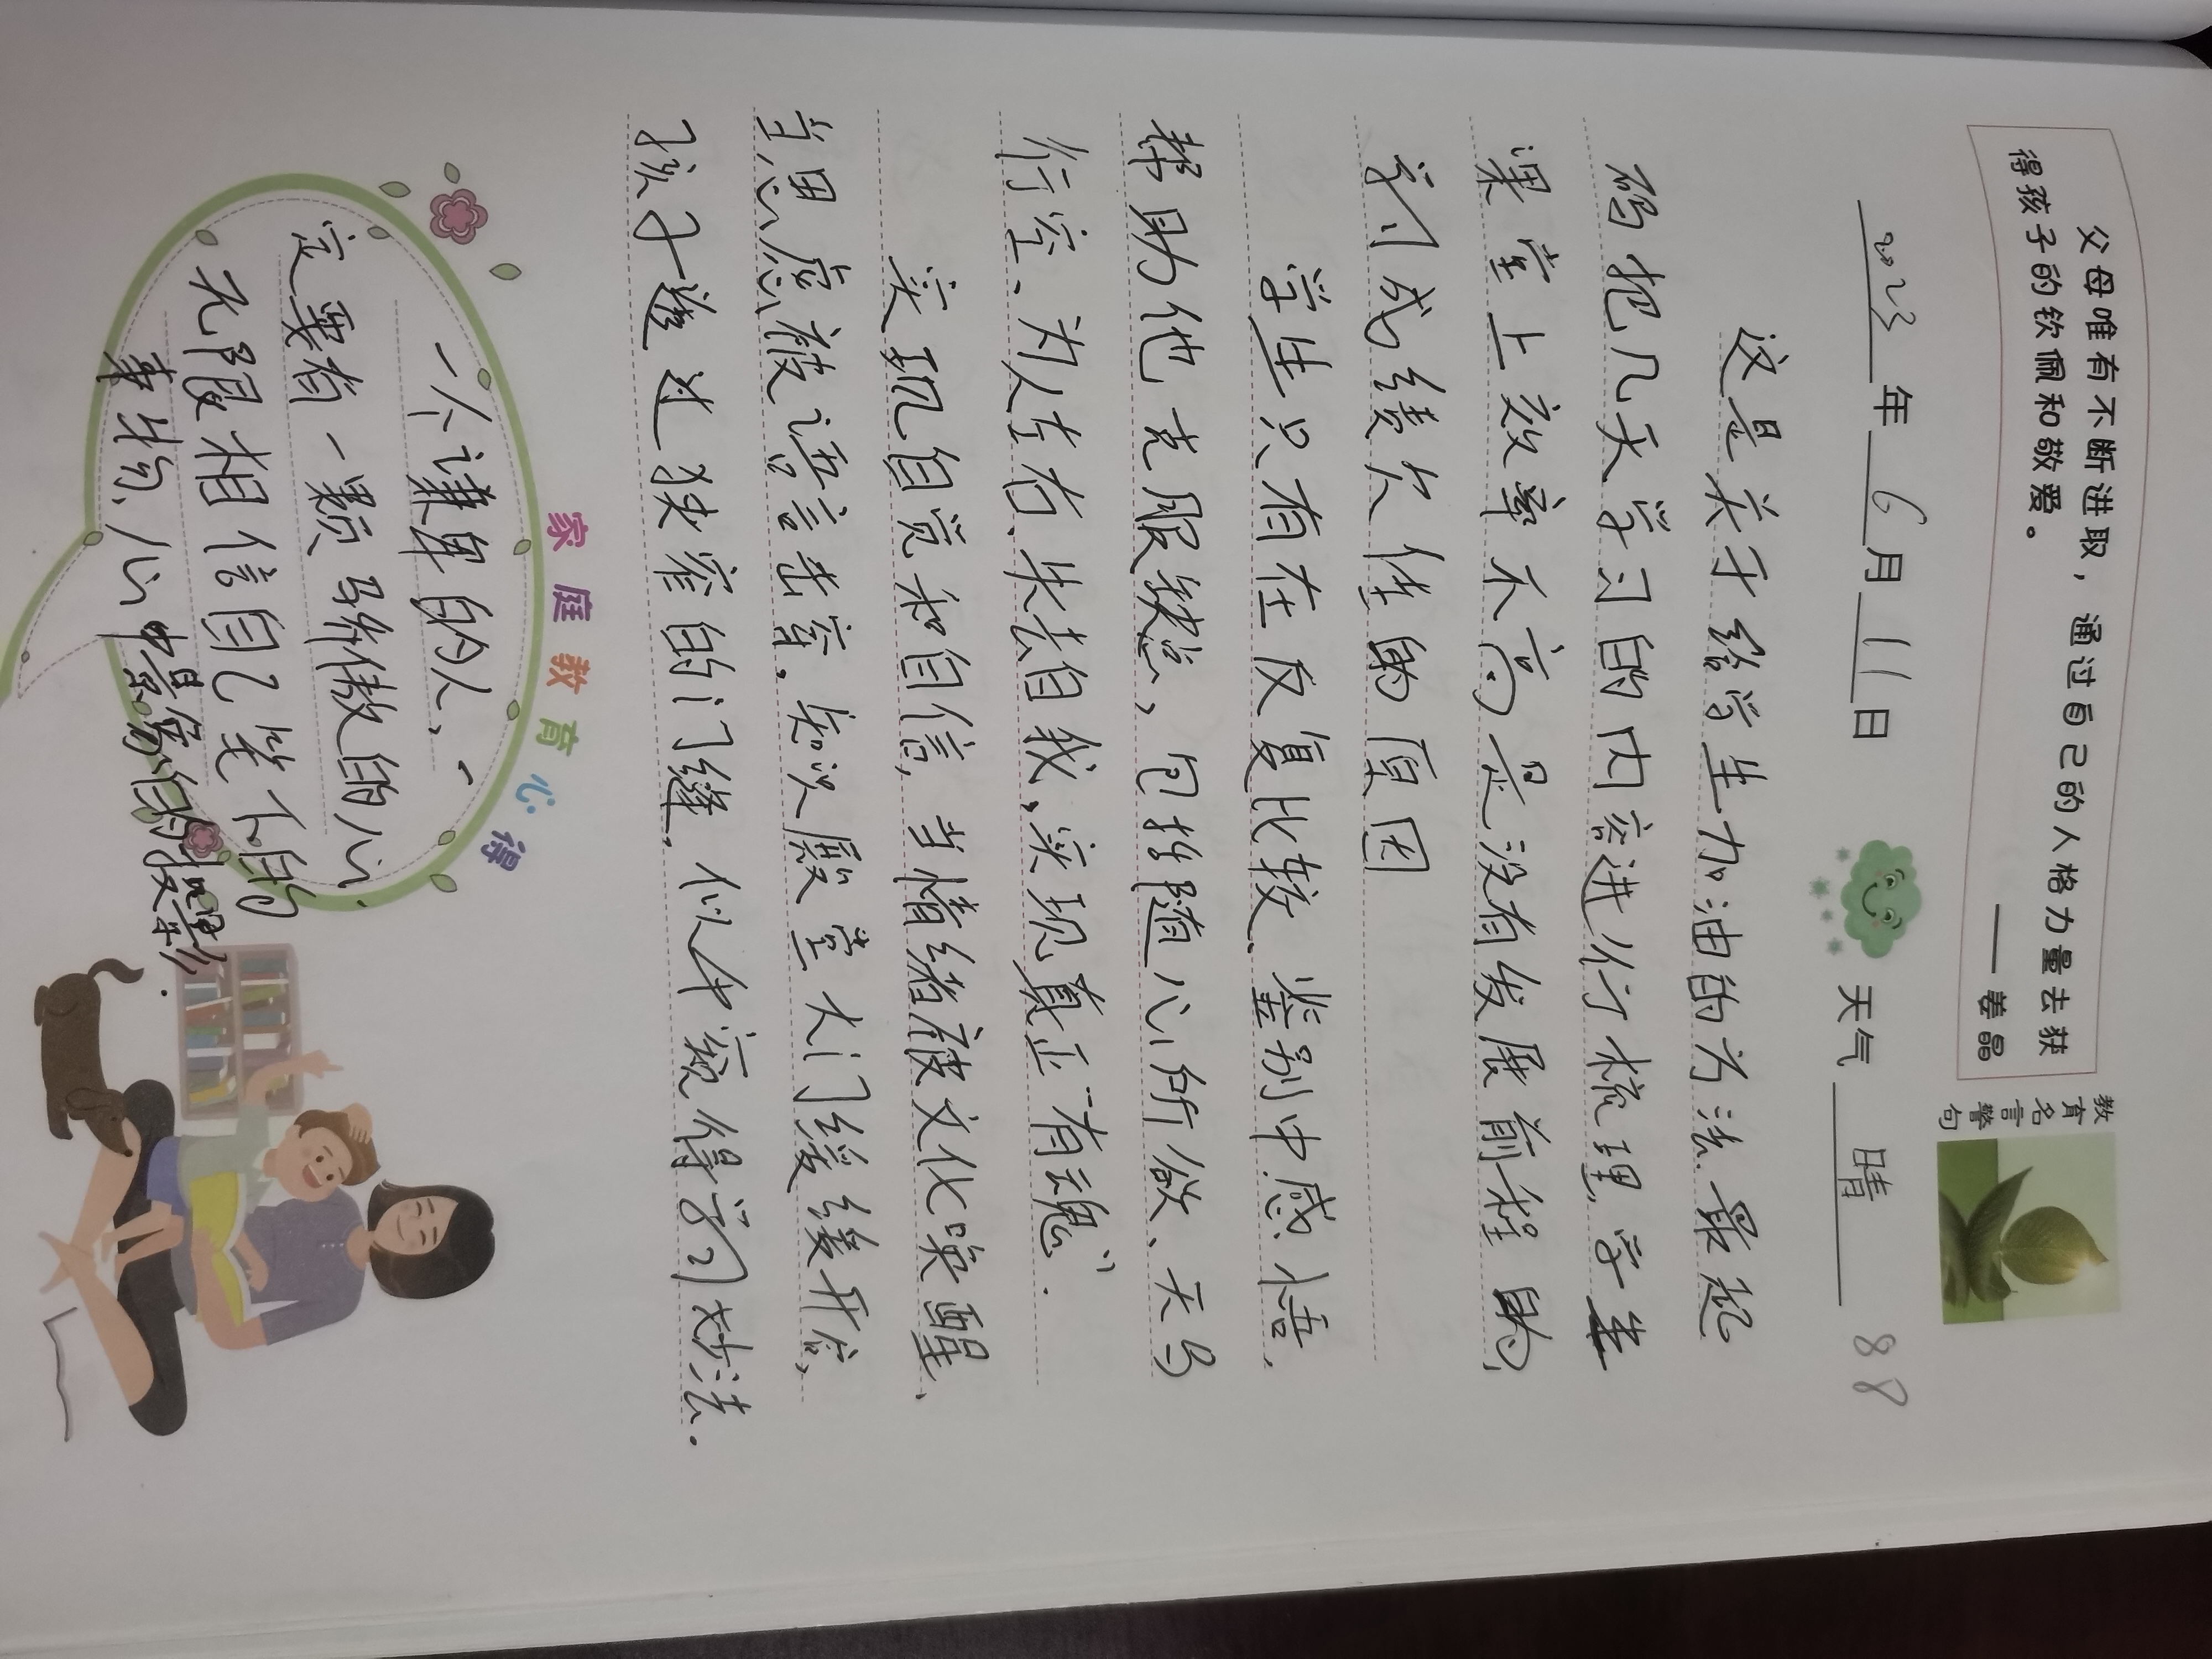 父母唯有不断进取，通过自己的人格力量去获
得孩子的钦佩和敬爱。
——姜晶
教育名言警句
2023年6月11日 天气 晴
88
这是关于给学生加油的方法.最起
码把几天学习的内容进行梳理.学生
课堂上效率不高是没有发展前程的,
学习成绩欠佳的原因
学生只有在反复比较、鉴别中感悟,
帮助他克服缺点，包括随心所欲、天马
行空、为人左右、失去自我,实现真正"有魂".
实现自觉和自信,当情绪被文化唤醒、
当思虑被语言击窖,知识殿堂大门缓缓开启,
孩子透过狭窄的门缝,似乎窥得学习妙法.
家庭教育心得
一个谦卑的人,一
定要有一颗骄傲的心.
无限相信自己笔下的
事物、心中景象的投影.